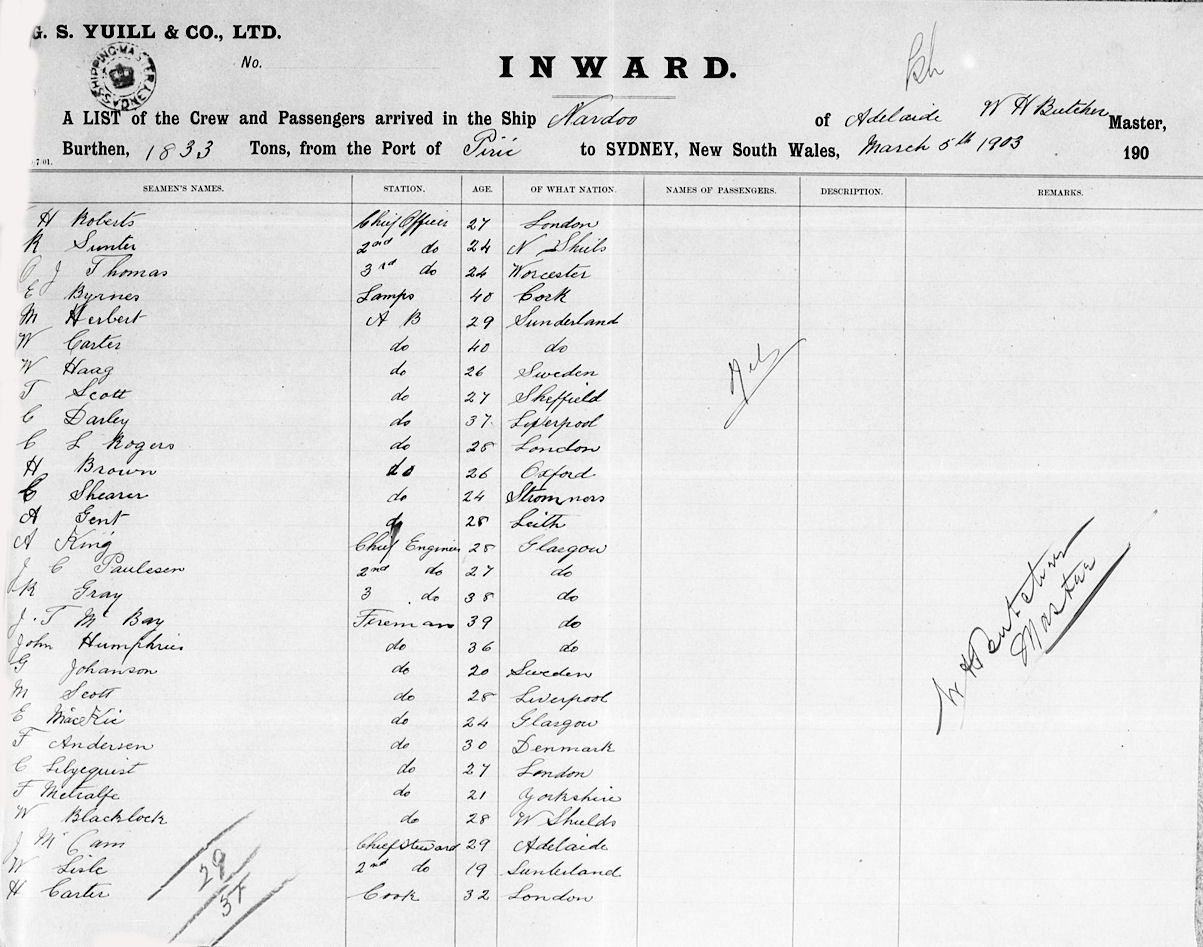 G. S. YUILL & CO., LTD.
SHIPPING MASTER
No.
INWARD.
A LIST of the Crew and Passengers arrived in the Ship Nardoo of Adelaide W H Butcher Master,
7 01.
Burthen, 1833 Tons, from the Port of Pirie to SYDNEY, New South Wales, March 5th 1903 190
SEAMEN'S NAMES. STATION. AGE. OF WHAT NATION. NAMES OF PASSENGERS. DESCRIPTION. REMARKS.
H Roberts Chief Officer 27 London
R Sunter 2nd do 24 N Shiels
J Thomas 3rd do 24 Worcester
E Byrnes Lamps 40 Cork
M Herbert A B 29 Sunderland
W Carter do 40 do
W Haag do 26 Sweden
T Scott do 27 Sheffield
C Darley do 37 Liverpool
C L Rogers do 28 London
H Brown do 26 Oxford
C Shearer do 24 Stromness
A Gent do 28 Leith
A King Chief Engineer 28 Glasgow
J C Paulesen 2nd do 27 do
R Gray 3 do 38 do
J. T Mc Bay Fireman 39 do
John Humphries do 36 do
G Johanson do 20 Sweden
M Scott do 28 Liverpool
E MacKie do 24 Glasgow
F Andersen do 30 Denmark
C Lilyequist do 27 London
F Metcalfe do 21 Yorkshire
W Blacklock do 28 W Shields
J Mc Cam Chief Steward 29 Adelaide
W Lisle 2nd do 19 Sunderland
H Carter Cook 32 London
Nil
W H Butcher
Master
29